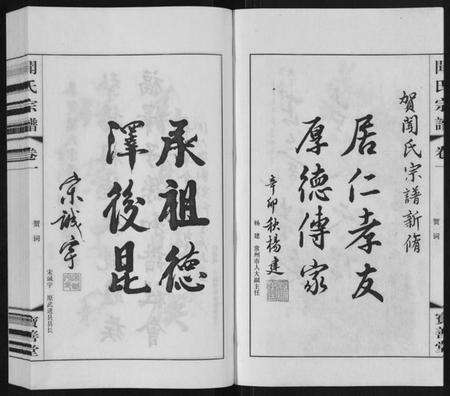 聞氏宗譜
卷一
賀詞
寶善堂
賀聞氏宗譜新脩
居仁孝友
厚德傳家
辛卯秋楊建
杨建 常州市人大副主任
承祖德
澤後昆
宋誠宇
宋誠宇 原武進縣縣長
聞氏宗譜
卷一
賀詞
寶善堂